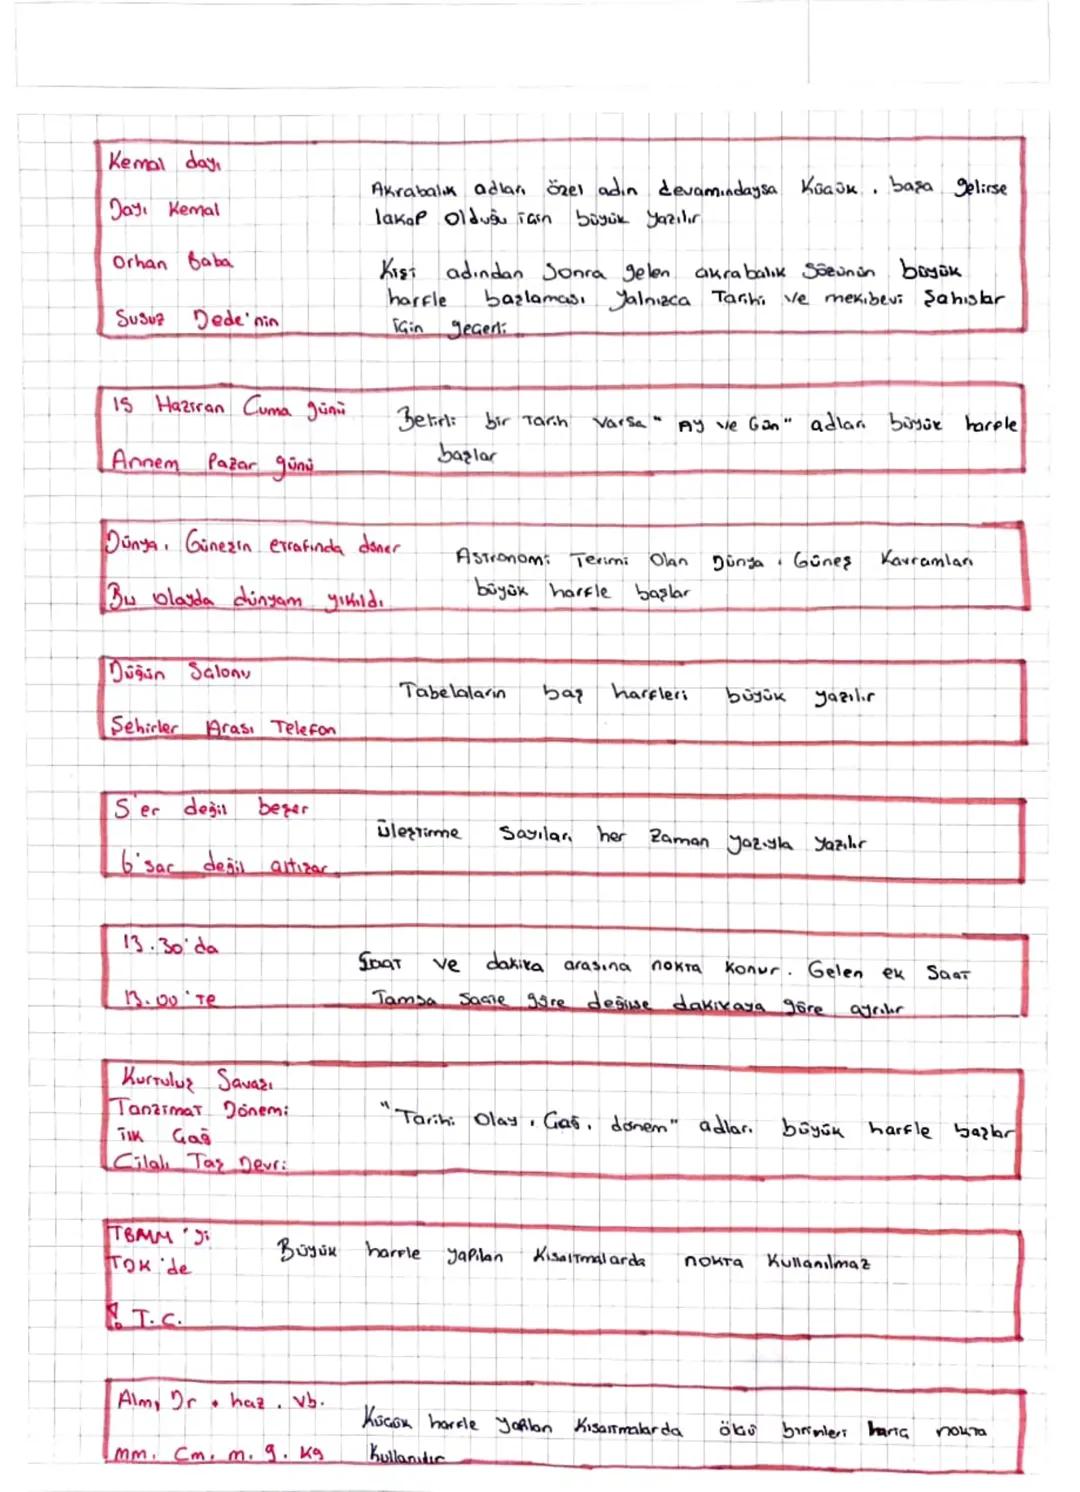 Kemal dayı
Akrabalık adları özel adın devamındaysa Küçük, başa gelirse
Dayı Kemal
lakap olduğu için büyük yazılır
Orhan Baba
Kişi adından Sonra gelen akrabalık Sözünün büyük
harfle başlaması yalnızca Tarihi ve Şahıslar
Susuz Dede'nin
için geçerli
15 Haziran Cuma günü
Belirli bir Tarih varsa "Ay ve Gün" adları büyük harfle
başlar
Annem Pazar günü
Dünya, Güneşin etrafında döner
Astronomi Terimi Olan Dünya, Güneş Kavramları
Bu olayda dünyam yıkıldı.
büyük harfle başlar
Düğün Salonu
Tabelaların baş harfleri büyük yazılır
Şehirler Arası Telefon
5'er değil beşer
Üleştirme Sayıları her Zaman yazıyla yazılır
6'şar değil altışar
13.30'da
Saat ve dakika arasına nokta konur. Gelen ek Saat
13.00'te
Tamsa Saate göre değilse dakikaya göre ayrılır
Kurtuluş Savaşı
Tanzimat Dönemi
"Tarihi Olay, Çağ, dönem" adları büyük harfle başlar
İlk Çağ
Cilalı Taş Devri
TBMM'yi
Büyük harfle yapılan Kısaltmalarda nokta Kullanılmaz
TDK'de
! T.C.
Alm, Dr. haz. vb.
Küçük harfle yapılan Kısaltmalarda ölçü birimleri hariç nokta
mm. Cm. m. g. Kg
Kullanılır